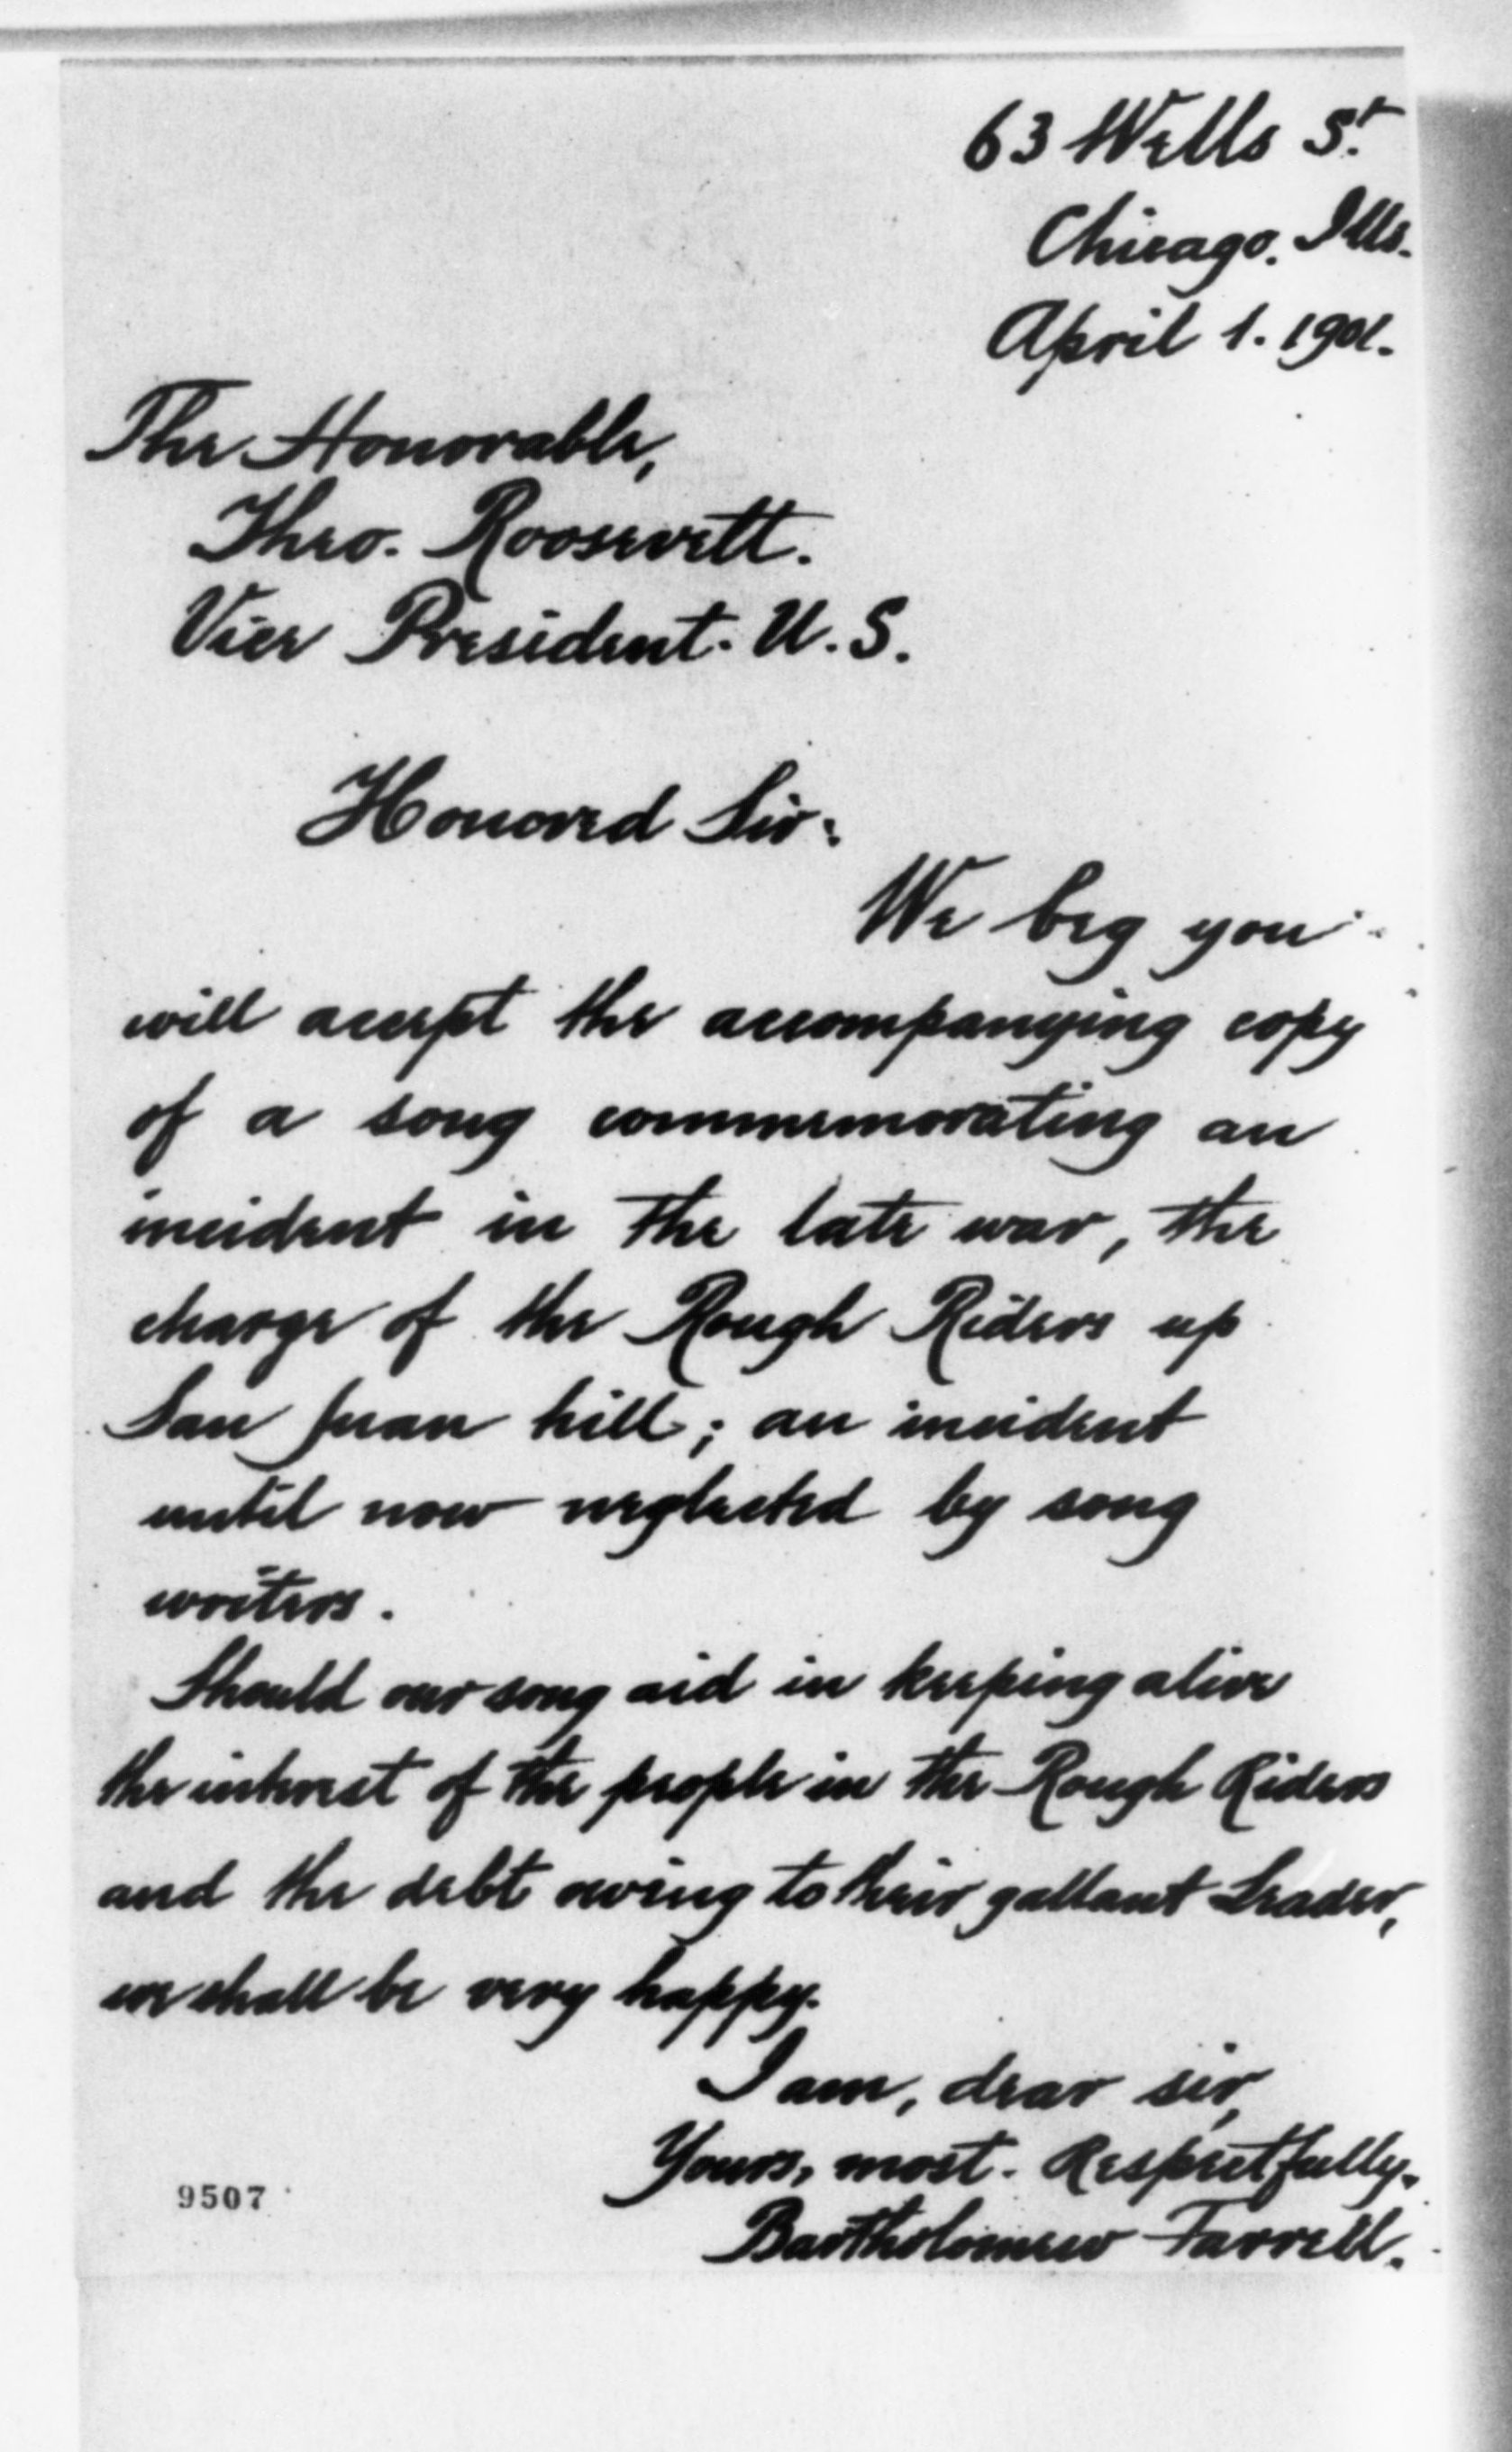 63 Wells St.
Chicago. Ills.
April 1. 1901.
The Honorable,
Theo. Roosevelt.
Vice President. U. S.
Honored Sir:
We beg you
will accept the accompanying copy
of a song commemorating an
incident in the late war, the
charge of the Rough Riders up
San Juan hill; an incident
until now neglected by song
writers.
Should our song aid in keeping alive
the interest of the people in the Rough Riders
and the debt owing to their gallant Leader,
we shall be very happy.
I am, dear sir,
Yours, most. Respectfully.
Bartholomew Farrell.
9507